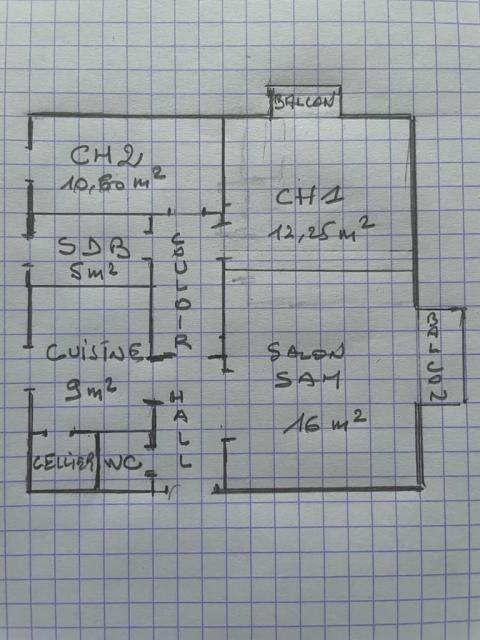 BALCON
CH2
10,60 m²
CH1
12,25 m²
SDB
5 m²
COULOIR
BALCON
CUISINE
9 m²
SALON
SAM
16 m²
HALL
CELLIER
WC